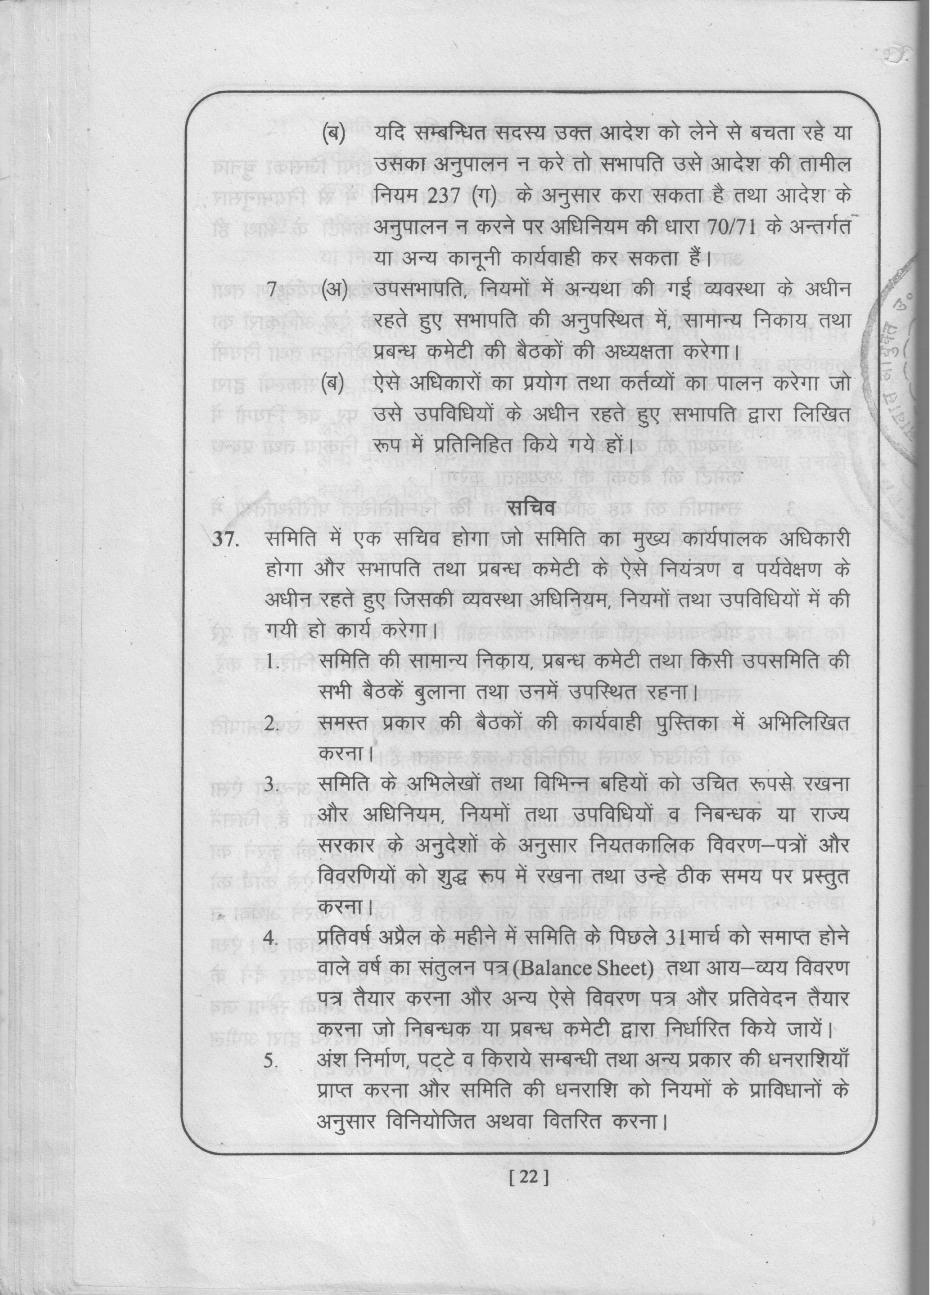 (ब) यदि सम्बन्धित सदस्य उक्त आदेश को लेने से बचता रहे या
उसका अनुपालन न करे तो सभापति उसे आदेश की तामील
नियम 237 (ग) के अनुसार करा सकता है तथा आदेश के
अनुपालन न करने पर अधिनियम की धारा 70/71 के अन्तर्गत
या अन्य कानूनी कार्यवाही कर सकता हैं।
7 (अ) उपसभापति, नियमों में अन्यथा की गई व्यवस्था के अधीन
रहते हुए सभापति की अनुपस्थित में, सामान्य निकाय तथा
प्रबन्ध कमेटी की बैठकों की अध्यक्षता करेगा।
(ब) ऐसे अधिकारों का प्रयोग तथा कर्तव्यों का पालन करेगा जो
उसे उपविधियों के अधीन रहते हुए सभापति द्वारा लिखित
रूप में प्रतिनिहित किये गये हों।
सचिव
37. समिति में एक सचिव होगा जो समिति का मुख्य कार्यपालक अधिकारी
होगा और सभापति तथा प्रबन्ध कमेटी के ऐसे नियंत्रण व पर्यवेक्षण के
अधीन रहते हुए जिसकी व्यवस्था अधिनियम, नियमों तथा उपविधियों में की
गयी हो कार्य करेगा।
1. समिति की सामान्य निकाय, प्रबन्ध कमेटी तथा किसी उपसमिति की
सभी बैठकें बुलाना तथा उनमें उपस्थित रहना।
2. समस्त प्रकार की बैठकों की कार्यवाही पुस्तिका में अभिलिखित
करना।
3. समिति के अभिलेखों तथा विभिन्न बहियों को उचित रूपसे रखना
और अधिनियम, नियमों तथा उपविधियों व निबन्धक या राज्य
सरकार के अनुदेशों के अनुसार नियतकालिक विवरण–पत्रों और
विवरणियों को शुद्ध रूप में रखना तथा उन्हे ठीक समय पर प्रस्तुत
करना।
4. प्रतिवर्ष अप्रैल के महीने में समिति के पिछले 31मार्च को समाप्त होने
वाले वर्ष का संतुलन पत्र (Balance Sheet) तथा आय–व्यय विवरण
पत्र तैयार करना और अन्य ऐसे विवरण पत्र और प्रतिवेदन तैयार
करना जो निबन्धक या प्रबन्ध कमेटी द्वारा निर्धारित किये जायें।
5. अंश निर्माण, पट्टे व किराये सम्बन्धी तथा अन्य प्रकार की धनराशियाँ
प्राप्त करना और समिति की धनराशि को नियमों के प्राविधानों के
अनुसार विनियोजित अथवा वितरित करना।
[ 22 ]